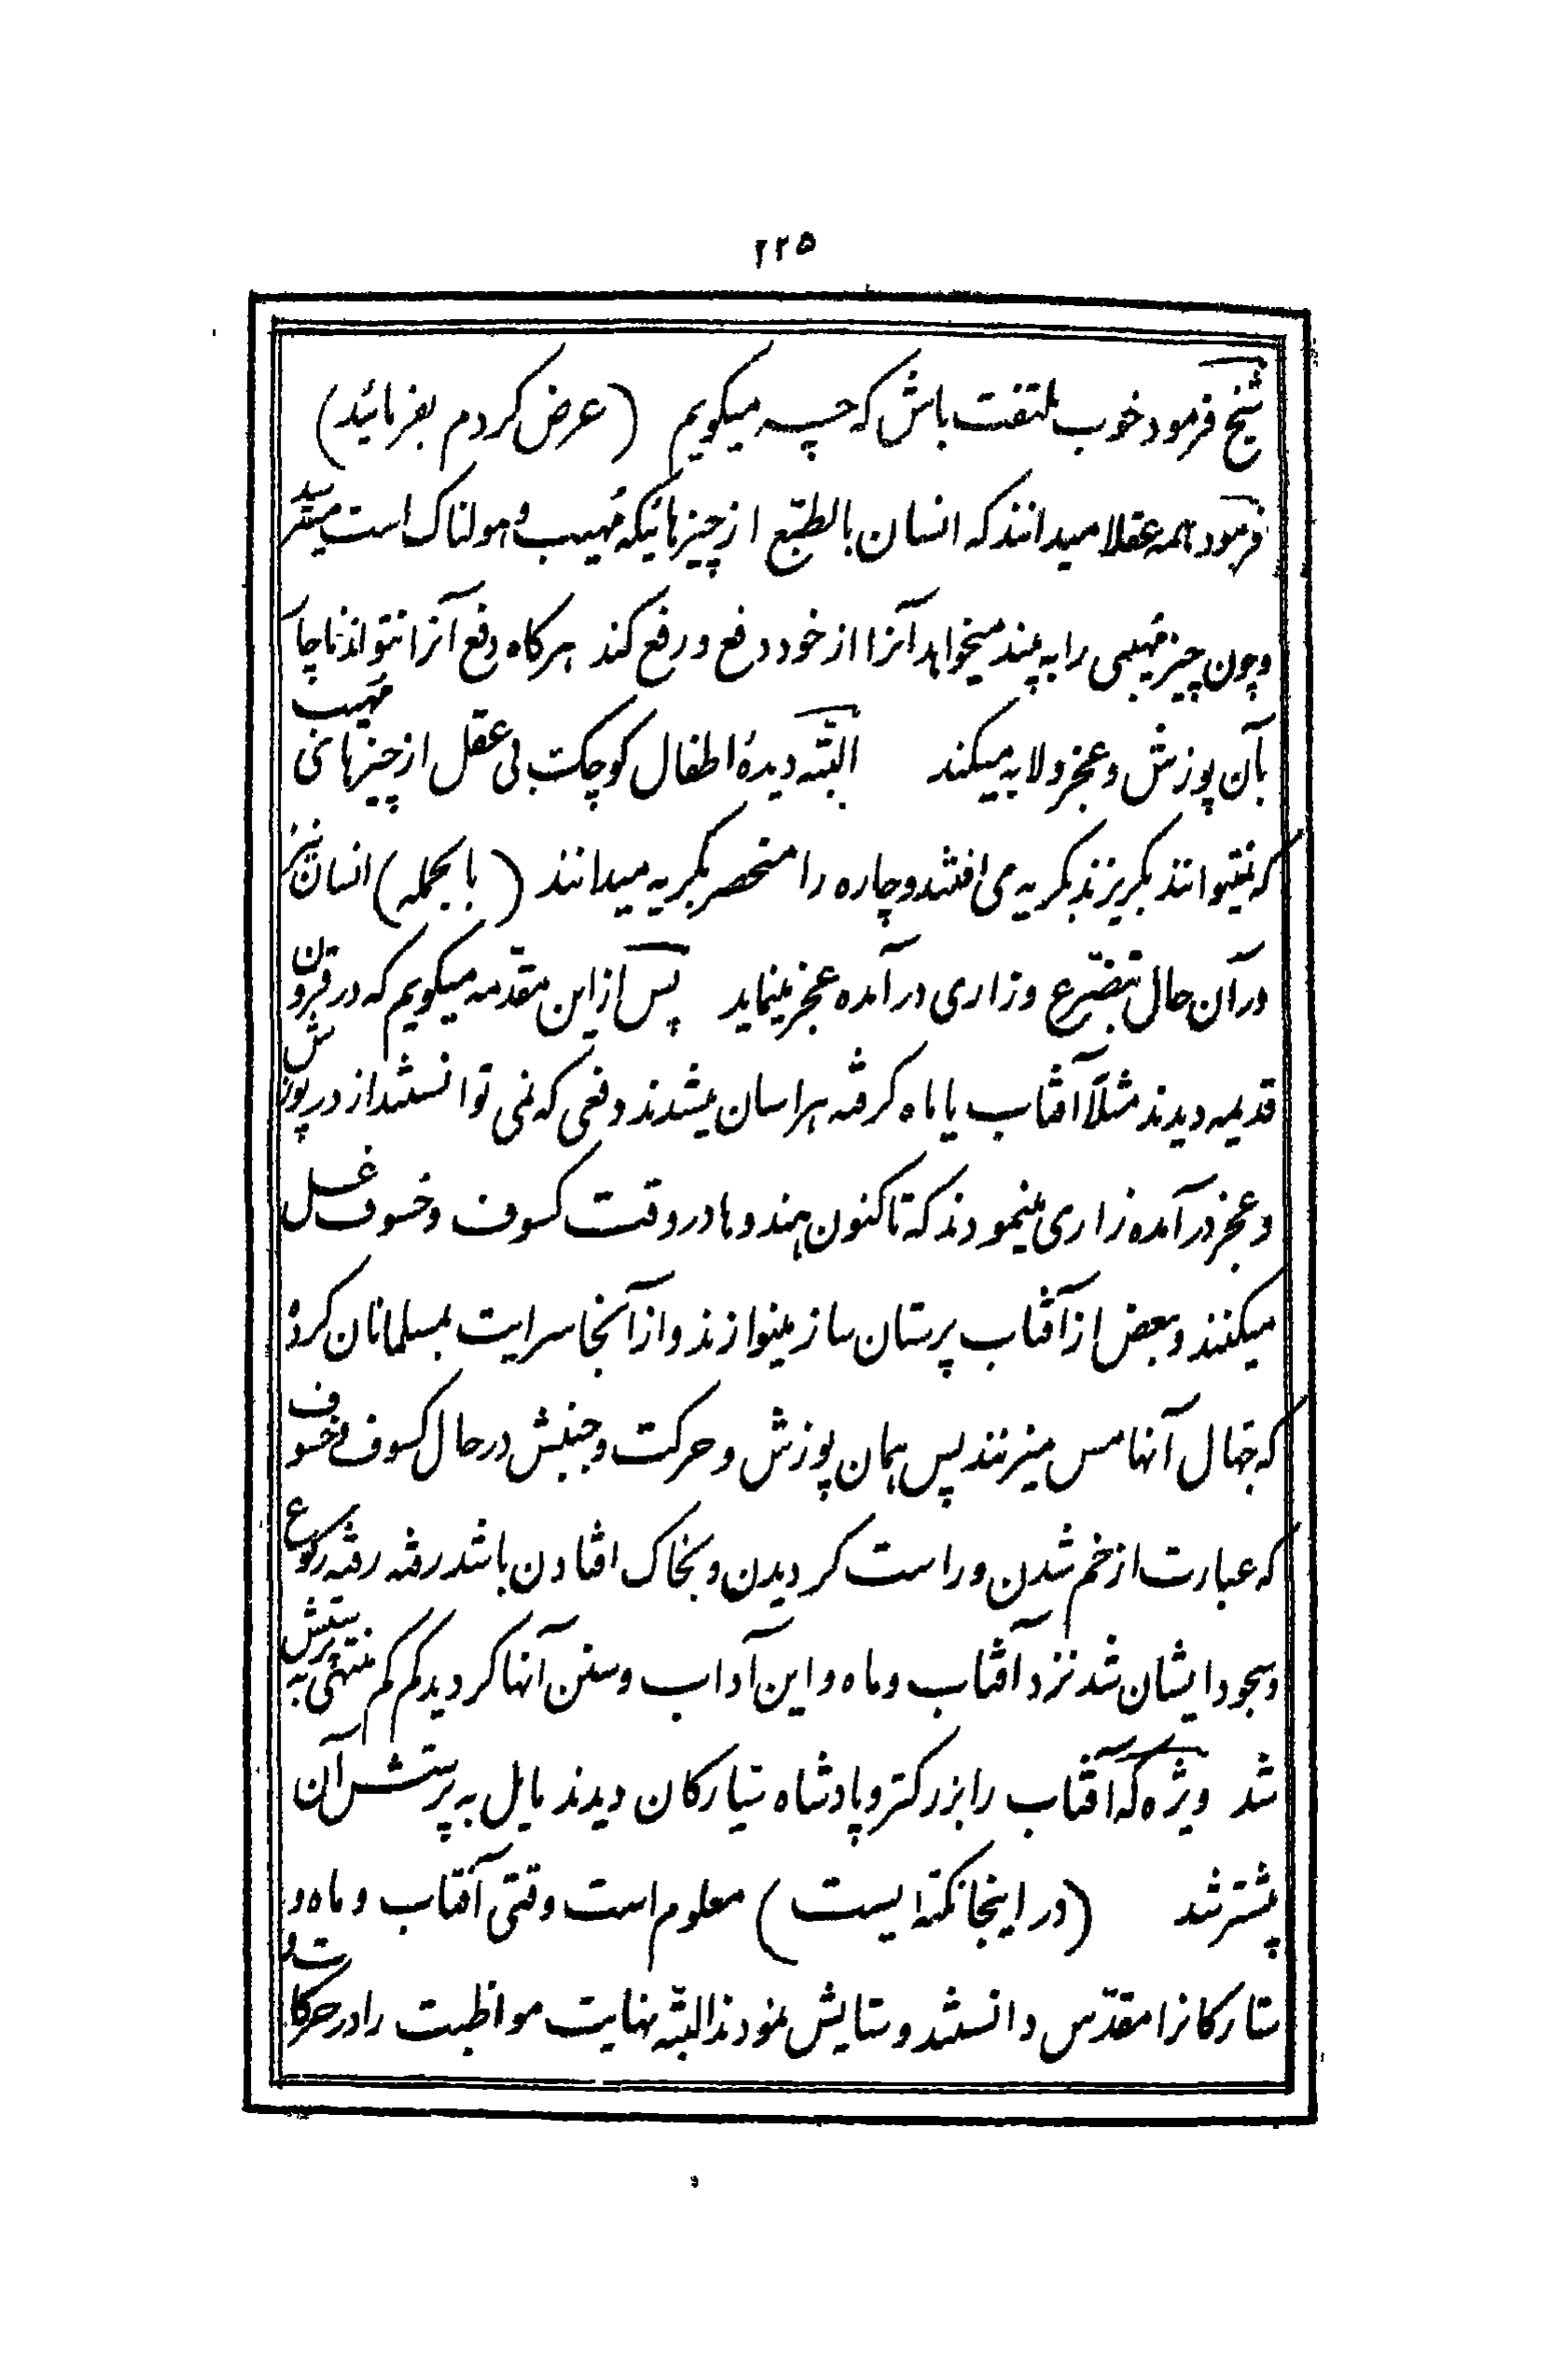 ۲۲۵
شیخ فرمود خوب ملتفت باش که چه میکویم (عرض کردم بفرمائید)
فرمود همه عقلا میدانند که انسان بالطبّع از چیزهائیکه مُهیب و هولناک است میترسد
و چون چیز مُهیبی را به بیند میخواهد آنرا از خود دفع و رفع کند هرکاه دفع آنرا نتواند ناچار
بآن پوزش و عجز و لابه میکند البتّه دیدهٔ اطفال کوچک بی عقل از چیزهائی مُهیب
که نمیتوانند بکریزند بکریه می افتند و چاره را منحصر بکریه میدانند (بالجمله) انسان نیز
در آن حال بتضرّع و زاری در آمده عجز مینماید پس از این مقدّمه میکویم که در قرون
قدیمه دیدند مثلاً آفتاب یا ماه کرفته هراسان میشدند دفعی که نمی توانستند از در پوزش
و عجز در آمده زاری مینمودند که تاکنون هندوها در وقت کسوف و خسوف غسل
میکنند و بعض از آفتاب پرستان ساز مینوازند و از آنجا سرایت بمسلمانان کرده
که جهّال آنها مس میزنند پس همان پوزش و حرکت و جنبش در حال کسوف و خسوف
که عبارت از خم شدن و راست کردیدن و بخاک افتادن باشد رفته رفته رکوع
و سجود ایشان شد نزد آفتاب و ماه و این آداب و سنن آنها کردید کم کم منتهی به پرستش
شد ویژه که آفتاب را بزرکتر و پادشاه سیّارکان دیدند مایل به پرستش آن
بیشتر شد (در اینجا نکته ایست) معلوم است وقتی آفتاب و ماه و
ستارکانرا مقدّس دانستند و ستایش نمودند البتّه نهایت مواظبت را در حرکات و